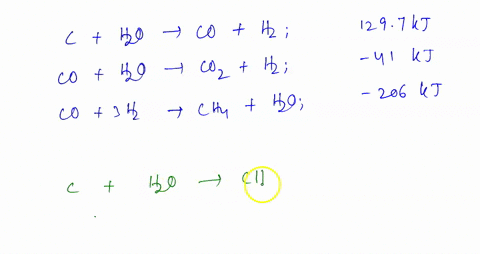 C + H2O → CO + H2; 129.7 kJ
CO + H2O → CO2 + H2; -41 kJ
CO + 3H2 → CH4 + H2O; -206 kJ
C + H2O → CH